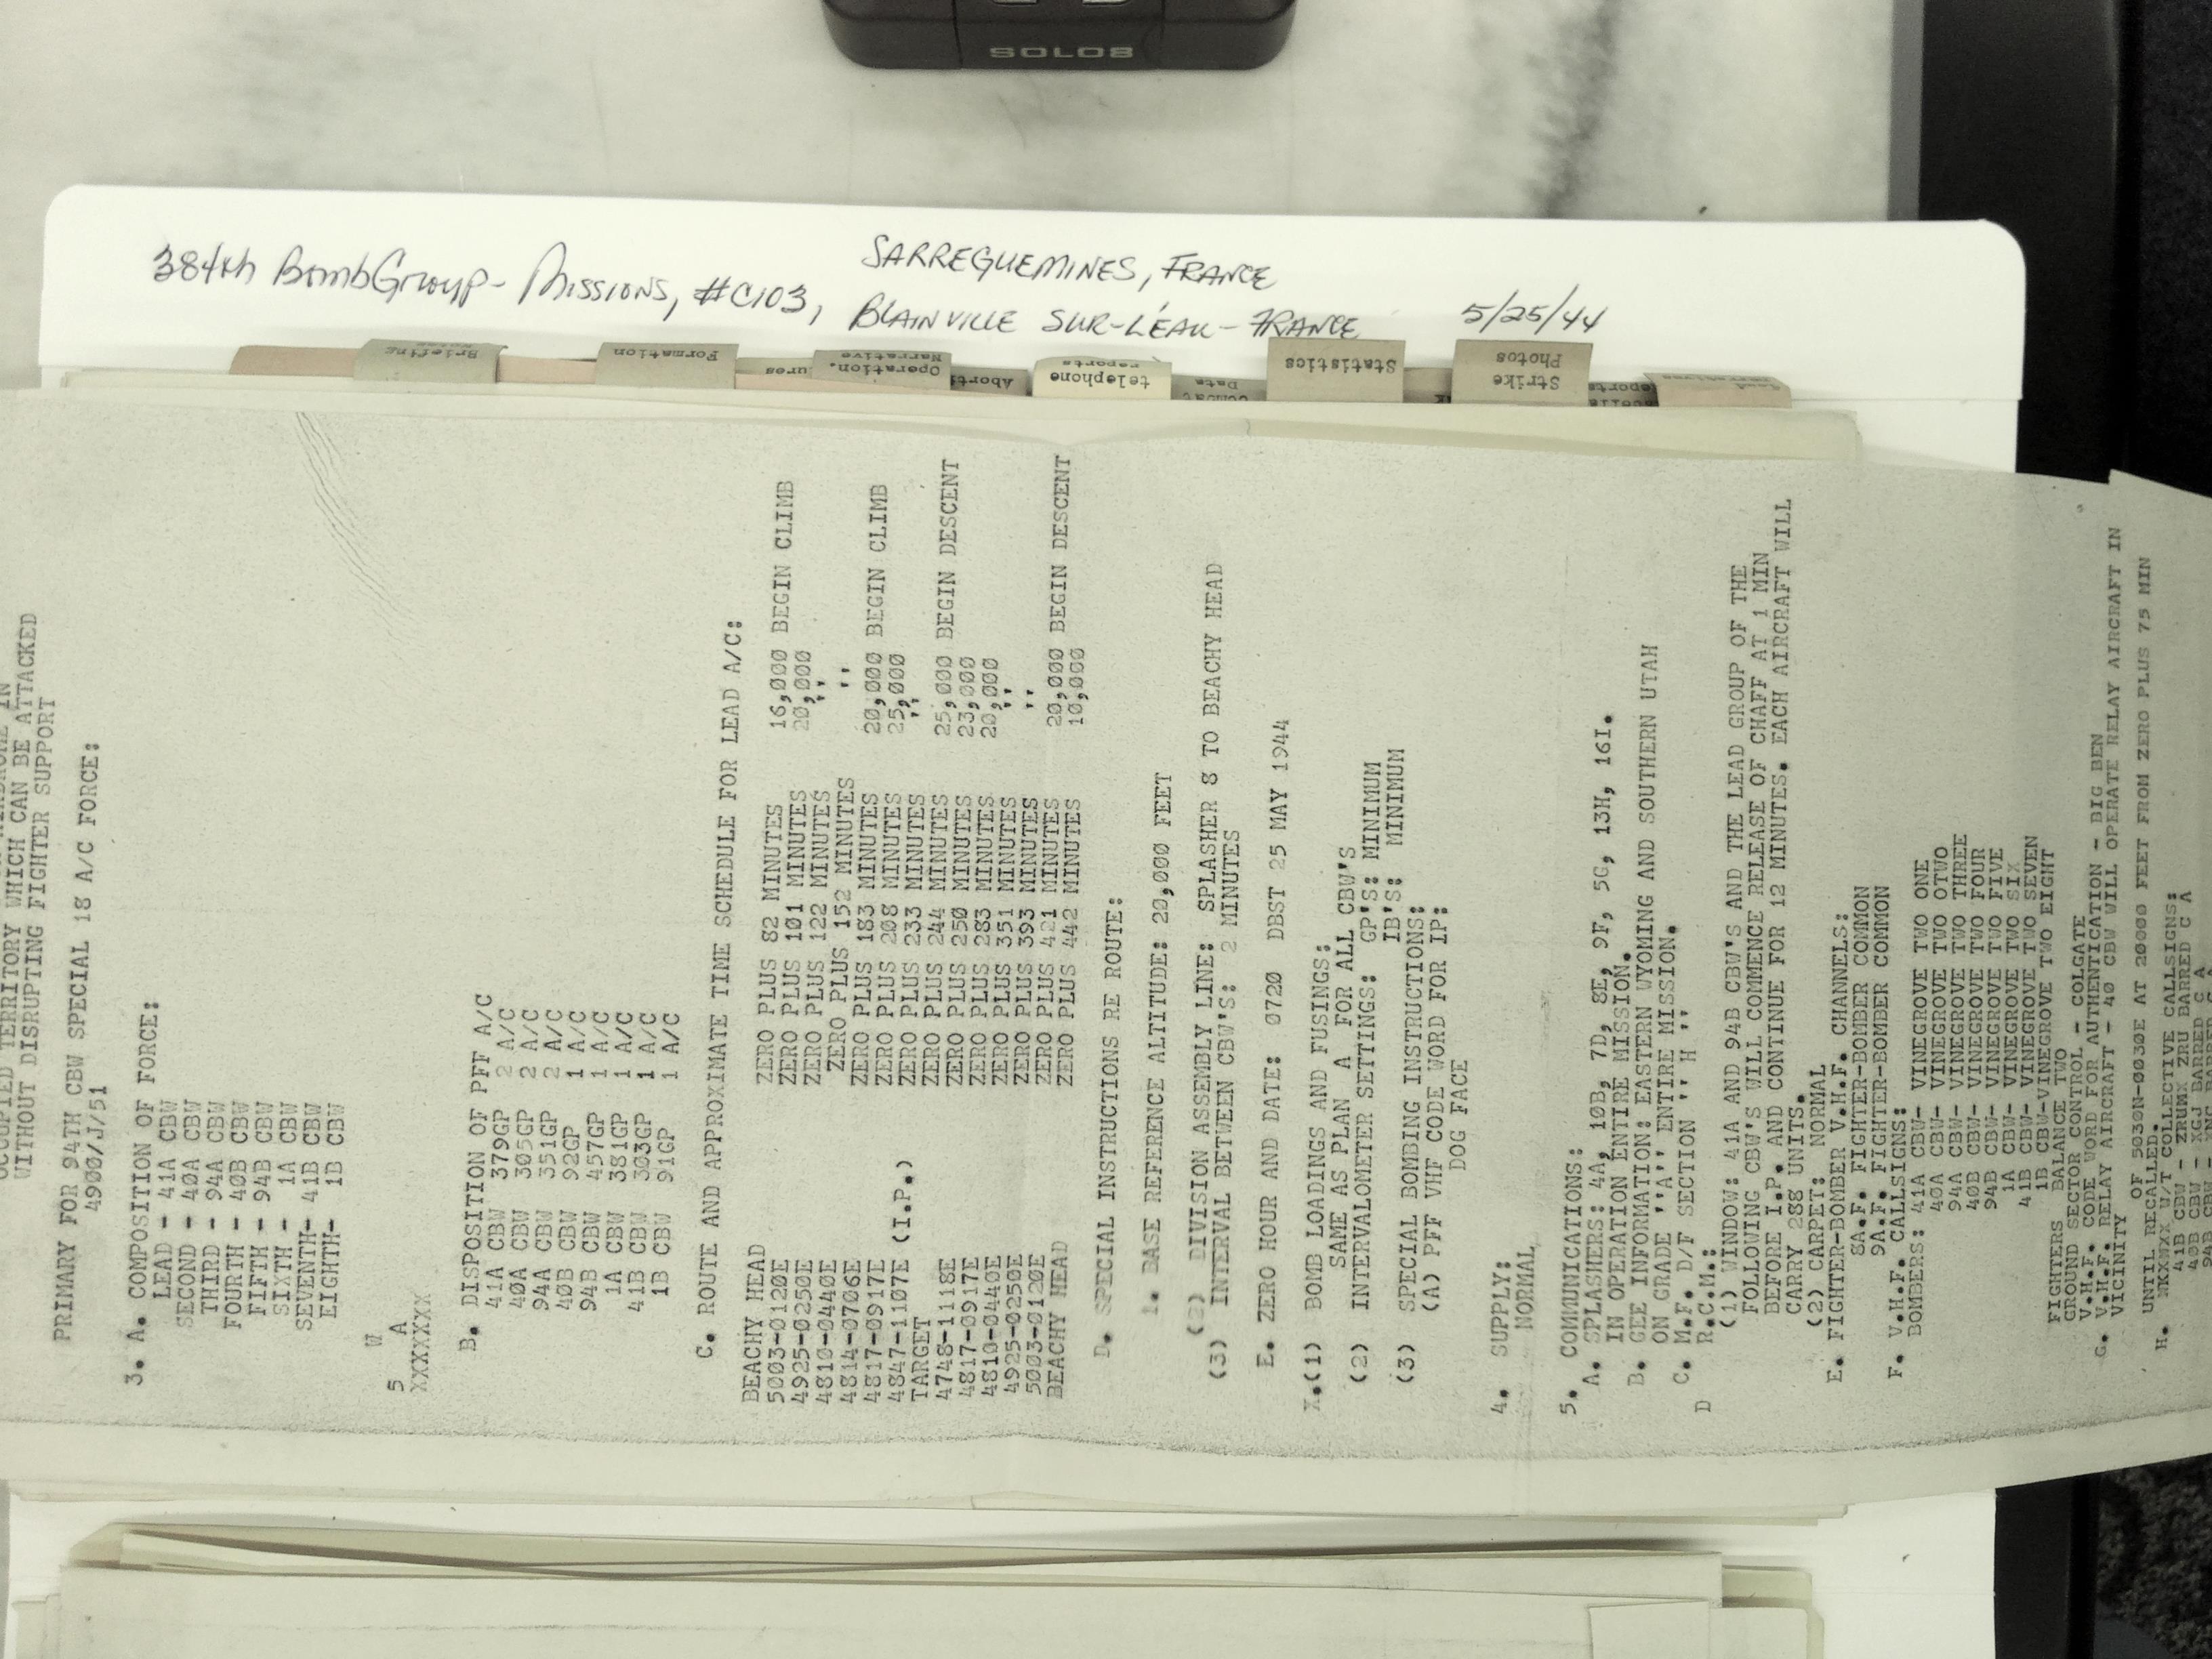 SOLO8
384th BombGroup- Missions, #C103,
SARREGUEMINES, FRANCE
BLAINVILLE SUR-L'EAU- FRANCE
5/25/44
Briefing
Formation
ures
Operation.
Narrative
Abort
telephone
reports
Data
Statistics
Strike
Photos
OCCUPIED TERRITORY WHICH CAN BE ATTACKED
WITHOUT DISRUPTING FIGHTER SUPPORT
PRIMARY FOR 94TH CBW SPECIAL 18 A/C FORCE:
4900/J/51
3. A. COMPOSITION OF FORCE:
LEAD - 41A CBW
SECOND - 40A CBW
THIRD - 94A CBW
FOURTH - 40B CBW
FIFTH - 94B CBW
SIXTH - 1A CBW
SEVENTH- 41B CBW
EIGHTH- 1B CBW
W
5 A
XXXXXXX
B. DISPOSITION OF PFF A/C
41A CBW 379GP 2 A/C
40A CBW 305GP 2 A/C
94A CBW 351GP 2 A/C
40B CBW 92GP 1 A/C
94B CBW 457GP 1 A/C
1A CBW 381GP 1 A/C
41B CBW 303GP 1 A/C
1B CBW 91GP 1 A/C
C. ROUTE AND APPROXIMATE TIME SCHEDULE FOR LEAD A/C:
BEACHY HEAD ZERO PLUS 82 MINUTES 16,000 BEGIN CLIMB
5003-0120E ZERO PLUS 101 MINUTES 20,000
4925-0250E ZERO PLUS 122 MINUTES ''
4810-0440E ZERO PLUS 152 MINUTES ''
4814-0706E ZERO PLUS 183 MINUTES 20,000 BEGIN CLIMB
4817-0917E ZERO PLUS 208 MINUTES 25,000
4847-1107E (I.P.) ZERO PLUS 233 MINUTES ''
TARGET ZERO PLUS 244 MINUTES 25,000 BEGIN DESCENT
4748-1118E ZERO PLUS 250 MINUTES 23,000
4817-0917E ZERO PLUS 283 MINUTES 20,000
4810-0440E ZERO PLUS 351 MINUTES ''
4925-0250E ZERO PLUS 393 MINUTES ''
5003-0120E ZERO PLUS 421 MINUTES 20,000 BEGIN DESCENT
BEACHY HEAD ZERO PLUS 442 MINUTES 10,000
D. SPECIAL INSTRUCTIONS RE ROUTE:
1. BASE REFERENCE ALTITUDE: 20,000 FEET
(2) DIVISION ASSEMBLY LINE: SPLASHER 8 TO BEACHY HEAD
(3) INTERVAL BETWEEN CBW'S: 2 MINUTES
E. ZERO HOUR AND DATE: 0720 DBST 25 MAY 1944
X.(1) BOMB LOADINGS AND FUSINGS:
SAME AS PLAN A FOR ALL CBW'S
(2) INTERVALOMETER SETTINGS: GP'S: MINIMUM
IB'S: MINIMUM
(3) SPECIAL BOMBING INSTRUCTIONS:
(A) PFF VHF CODE WORD FOR IP:
DOG FACE
4. SUPPLY:
NORMAL
5. COMMUNICATIONS:
A. SPLASHERS: 4A, 10B, 7D, 8E, 9F, 5G, 13H, 16I.
IN OPERATION ENTIRE MISSION.
B. GEE INFORMATION: EASTERN WYOMING AND SOUTHERN UTAH
ON GRADE ''A'' ENTIRE MISSION.
C. M.F. D/F SECTION '' H ''
D R.C.M.:
(1) WINDOW: 41A AND 94B CBW'S AND THE LEAD GROUP OF THE
FOLLOWING CBW'S WILL COMMENCE RELEASE OF CHAFF AT 1 MIN
BEFORE I.P. AND CONTINUE FOR 12 MINUTES. EACH AIRCRAFT WILL
CARRY 288 UNITS.
(2) CARPET: NORMAL
E. FIGHTER-BOMBER V.H.F. CHANNELS:
8A.F. FIGHTER-BOMBER COMMON
9A.F. FIGHTER-BOMBER COMMON
F. V.H.F. CALLSIGNS:
BOMBERS: 41A CBW- VINEGROVE TWO ONE
40A CBW- VINEGROVE TWO OTWO
94A CBW- VINEGROVE TWO THREE
40B CBW- VINEGROVE TWO FOUR
94B CBW- VINEGROVE TWO FIVE
1A CBW- VINEGROVE TWO SIX
41B CBW- VINEGROVE TWO SEVEN
1B CBW-VINEGROVE TWO EIGHT
FIGHTERS BALANCE TWO
GROUND SECTOR CONTROL - COLGATE
V.H.F. CODE WORD FOR AUTHENTICATION - BIG BEN
G. V.H.F. RELAY AIRCRAFT - 40 CBW WILL OPERATE RELAY AIRCRAFT IN
VICINITY
OF 5030N-0030E AT 20000 FEET FROM ZERO PLUS 75 MIN
UNTIL RECALLED.
H. W/T COLLECTIVE CALLSIGNS:
41B CBW - ZRUMX ZRU BARRED C A
40B CBW - XGJ BARRED C A
94B CBW